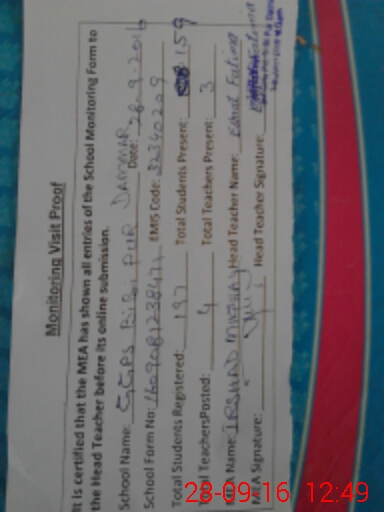 Monitoring Visit Proof
It is certified that the MEA has shown all entries of the School Monitoring Form to
the Head Teacher before its online submission.
School Name: GGPS BiBi PUR DAMMAR Date: 28-9-2016
School Form No: EMIS Code: 32340209
Total Students Registered: 197 Total Students Present: 159
Total TeachersPosted: 4 Total Teachers Present: 3
Name: IRSHAD MAZHAR Head Teacher Name: Fatima
MEA Signature: Head Teacher Signature:
28-09-16 12:49